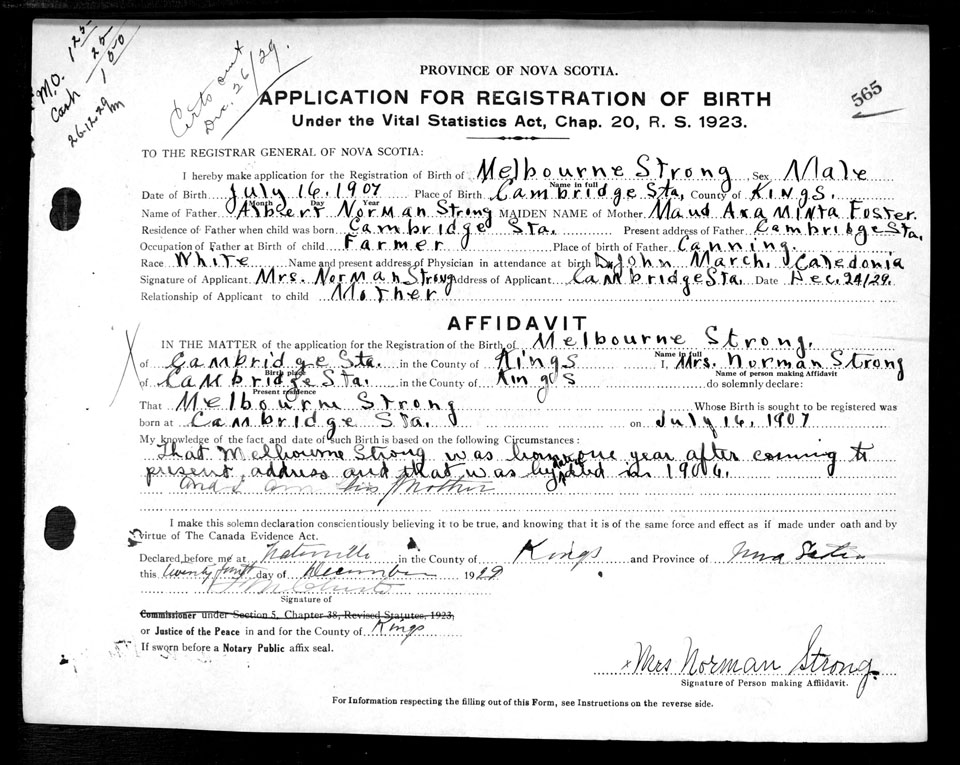 M.O. 1 25
Cash 25
1 50
26.12.29
Certs out
Dec. 26/29.
565
PROVINCE OF NOVA SCOTIA.
APPLICATION FOR REGISTRATION OF BIRTH
Under the Vital Statistics Act, Chap. 20, R. S. 1923.
TO THE REGISTRAR GENERAL OF NOVA SCOTIA:
I hereby make application for the Registration of Birth of Melbourne Strong Sex Male
Name in full
Date of Birth July 16. 1907 Place of Birth Cambridge Sta, County of Kings.
Month Day Year
Name of Father Albsert Norman Strong MAIDEN NAME of Mother Maud Araminta Foster.
Residence of Father when child was born Cambridge Sta. Present address of Father Cambridge Sta.
Occupation of Father at Birth of child Farmer Place of birth of Father Canning.
Race White Name and present address of Physician in attendance at birth Dr John March, Caledonia
Signature of Applicant Mrs. Norman Strong Address of Applicant Cambridge Sta. Date Dec. 24/29.
Relationship of Applicant to child Mother
AFFIDAVIT
IN THE MATTER of the application for the Registration of the Birth of Melbourne Strong.
Name in full
of Cambridge Sta. in the County of Kings I, Mrs. Norman Strong
Birth place Name of person making Affidavit
of Cambridge Sta. in the County of Kings do solemnly declare:
Present residence
That Melbourne Strong Whose Birth is sought to be registered was
born at Cambridge Sta. on July 16, 1907
My knowledge of the fact and date of such Birth is based on the following Circumstances:
That Melbourne Strong was born one year after coming to
present address and that was by deed dated in 1906.
and I am his Mother
I make this solemn declaration conscientiously believing it to be true, and knowing that it is of the same force and effect as if made under oath and by
virtue of The Canada Evidence Act.
Declared before me at Waterville in the County of Kings and Province of Nova Scotia
this twenty fourth day of December 1929
Signature of
Commissioner under Section 5, Chapter 38, Revised Statutes, 1923,
or Justice of the Peace in and for the County of Kings
If sworn before a Notary Public affix seal.
x Mrs Norman Strong.
Signature of Person making Affidavit.
For Information respecting the filling out of this Form, see Instructions on the reverse side.